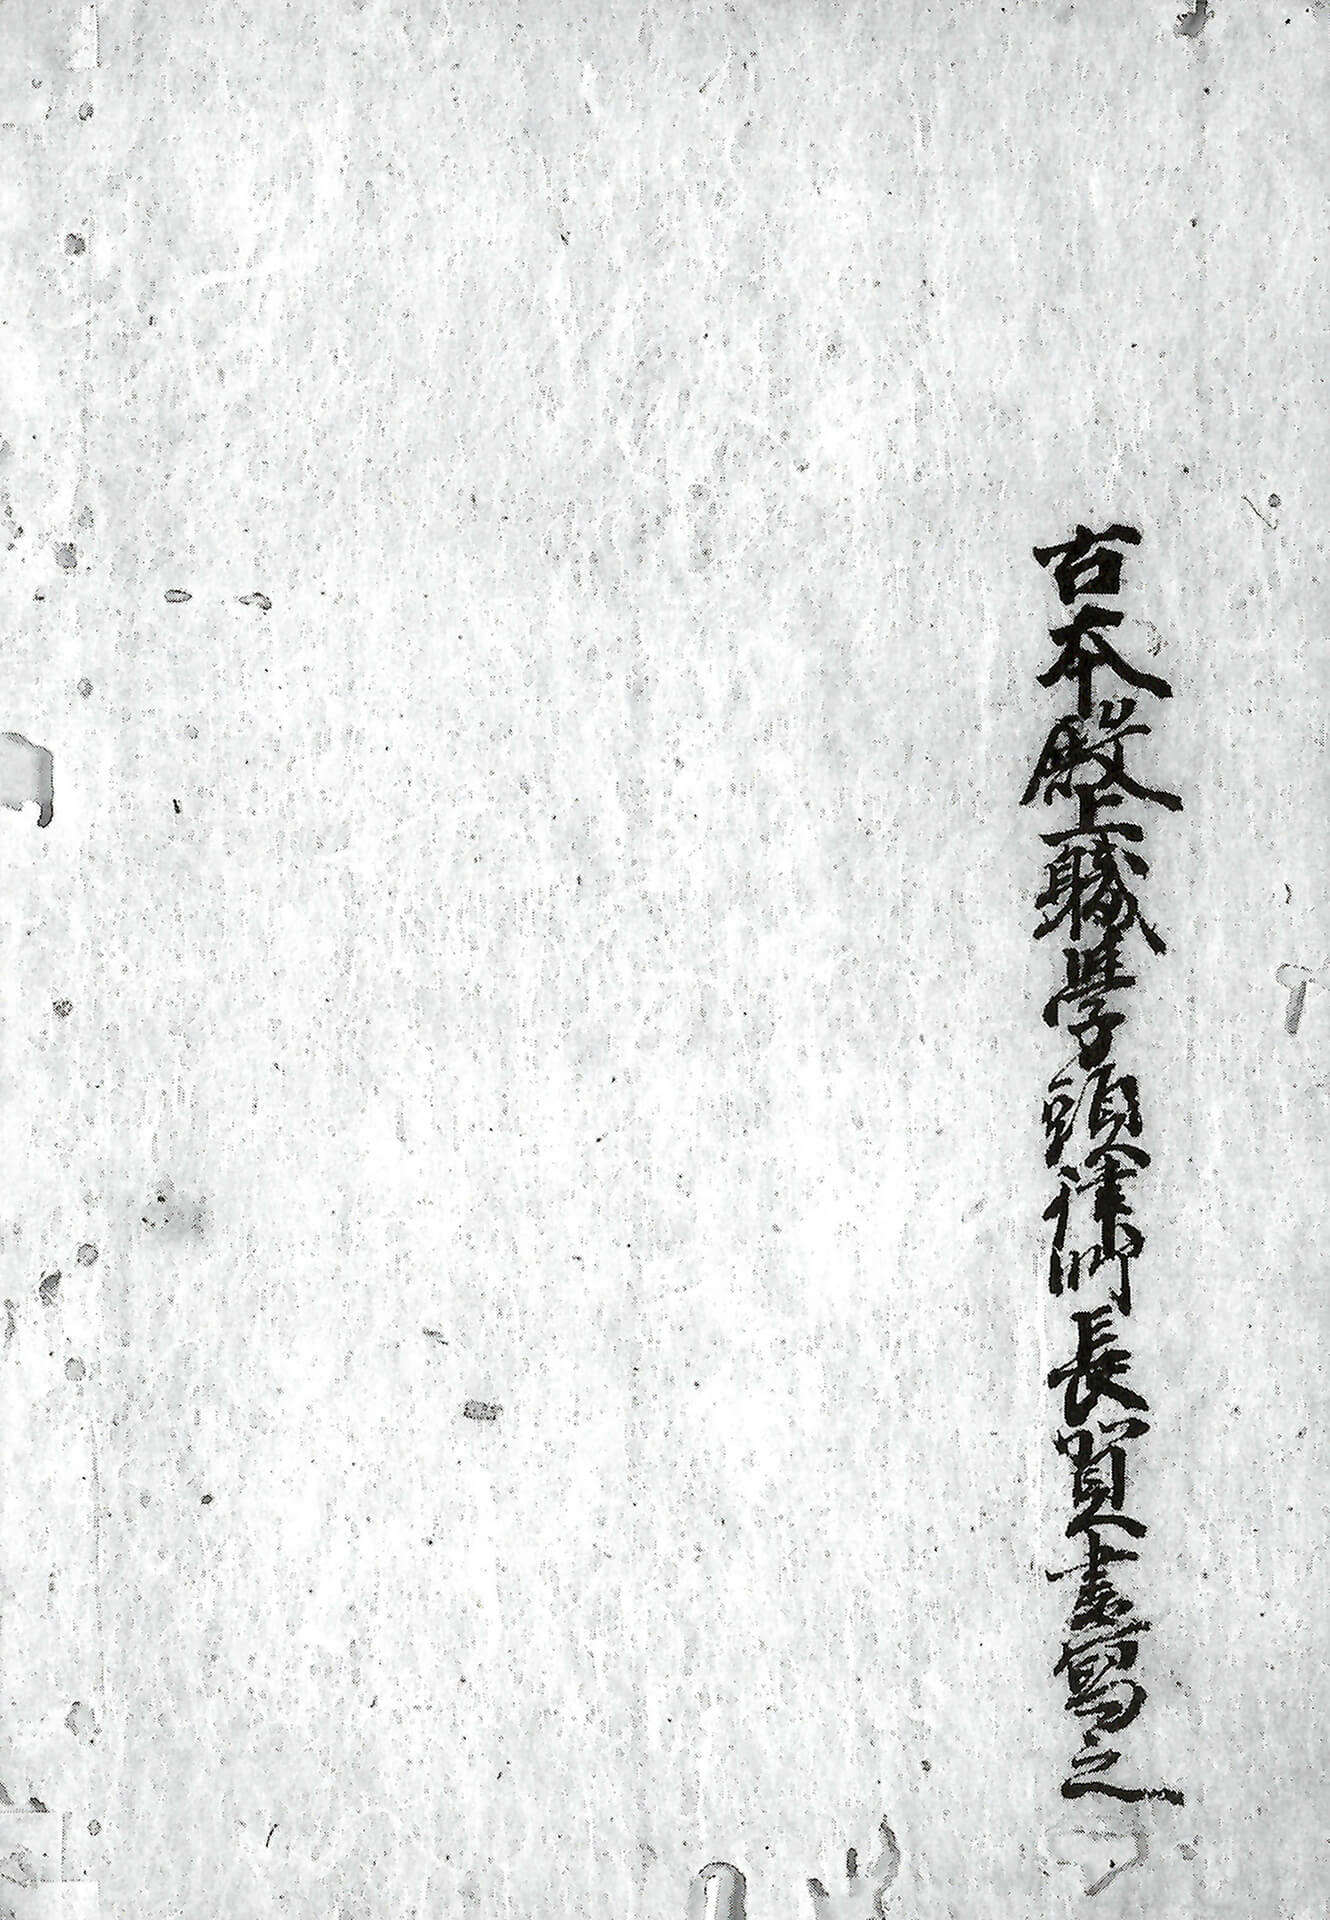 古本殿上職學頭律師長賀書寫之